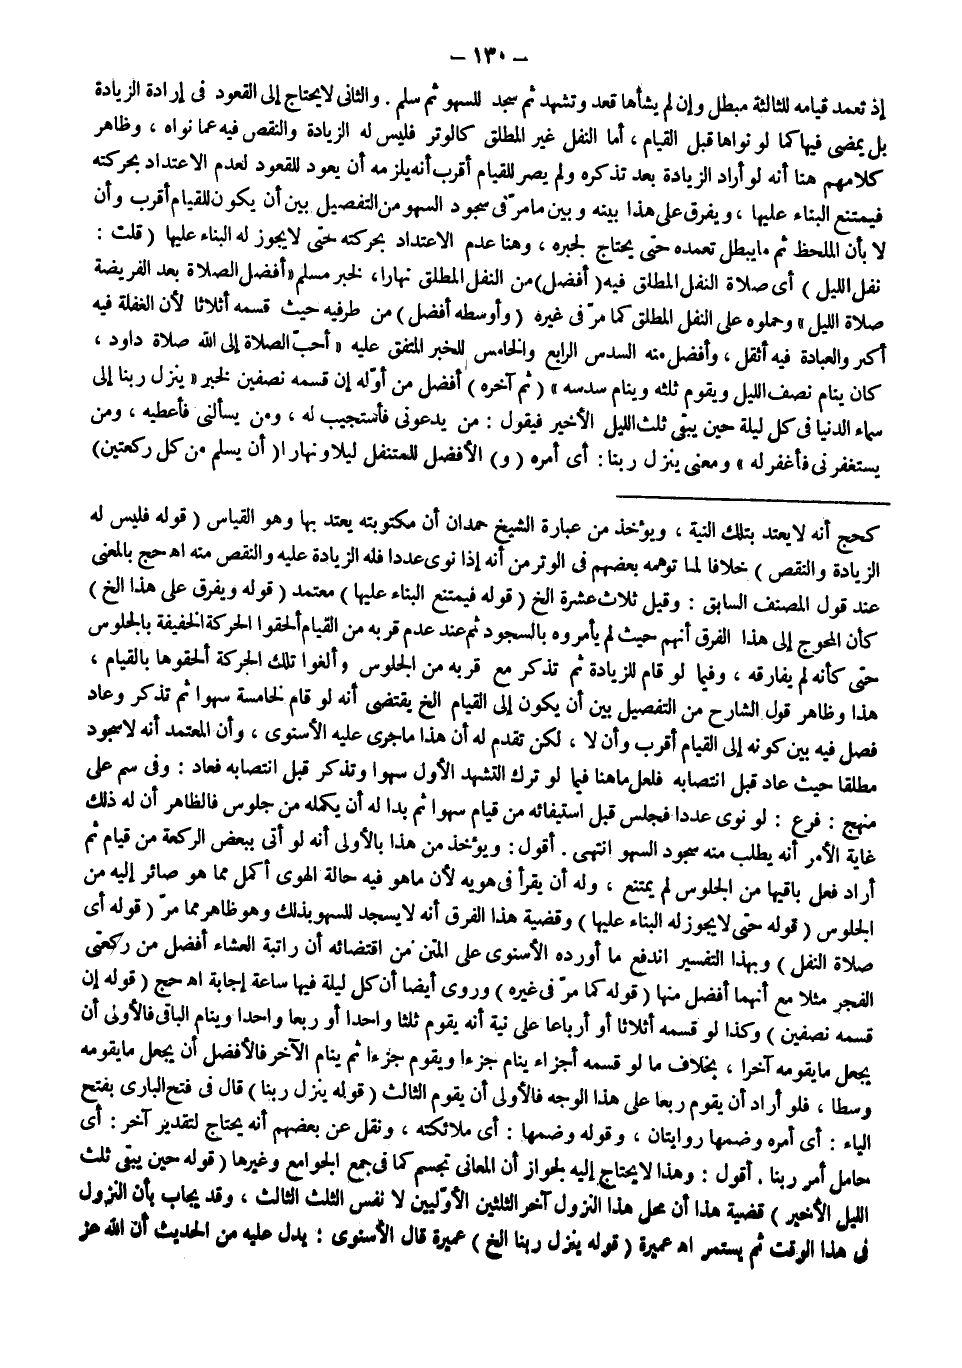 – ١٣٠ –
إذ تعمد قيامه للثالثة مبطل وإن لم يشأها قعد وتشهد ثم سجد للسهو ثم سلم . والثانى لايحتاج إلى القعود فى إرادة الزيادة
بل يمضى فيها كما لو نواها قبل القيام ، أما النفل غير المطلق كالوتر فليس له الزيادة والنقص فيه عما نواه ، وظاهر
كلامهم هنا أنه لو أراد الزيادة بعد تذكره ولم يصر للقيام أقرب أنه يلزمه أن يعود للقعود لعدم الاعتداد بحركته
فيمتنع البناء عليها ، ويفرق على هذا بينه وبين مامرّ فى سجود السهو من التفصيل بين أن يكون للقيام أقرب وأن
لا بأن الملحظ ثم مايبطل تعمده حتى يحتاج لجبره ، وهنا عدم الاعتداد بحركته حتى لايجوز له البناء عليها ( قلت :
نفل الليل ) أى صلاة النفل المطلق فيه ( أفضل) من النفل المطلق نهارا، لخبر مسلم «أفضل الصلاة بعد الفريضة
صلاة الليل» وحملوه على النفل المطلق كما مرّ فى غيره ( وأوسطه أفضل ) من طرفيه حيث قسمه أثلاثا لأن الغفلة فيه
أكبر والعبادة فيه أثقل ، وأفضل منه السدس الرابع والخامس للخبر المتفق عليه «أحبّ الصلاة إلى الله صلاة داود ،
كان ينام نصف الليل ويقوم ثلثه وينام سدسه» ( ثم آخره ) أفضل من أوّله إن قسمه نصفين لخبر «ينزل ربنا إلى
سماء الدنيا فى كل ليلة حين يبقى ثلث الليل الأخير فيقول : من يدعونى فأستجيب له ، ومن يسألنى فأعطيه ، ومن
يستغفرنى فأغفر له» ومعنى ينزل ربنا : أى أمره ( و) الأفضل للمتنفل ليلا ونهارا ( أن يسلم من كل ركعتين)
كحج أنه لايعتد بتلك النية ، ويؤخذ من عبارة الشيخ حمدان أن مكتوبته يعتد بها وهو القياس ( قوله فليس له
الزيادة والنقص ) خلافا لما توهمه بعضهم فى الوتر من أنه إذا نوى عددا فله الزيادة عليه والنقص منه اه حج بالمعنى
عند قول المصنف السابق : وقيل ثلاث عشرة الخ ( قوله فيمتنع البناء عليها ) معتمد ( قوله ويفرق على هذا الخ )
كأن المحوج إلى هذا الفرق أنهم حيث لم يأمروه بالسجود ثم عند عدم قربه من القيام ألحقوا الحركة الخفيفة بالجلوس
حتى كأنه لم يفارقه ، وفيما لو قام للزيادة ثم تذكر مع قربه من الجلوس وألغوا تلك الحركة ألحقوها بالقيام ،
هذا وظاهر قول الشارح من التفصيل بين أن يكون إلى القيام الخ يقتضى أنه لو قام لخامسة سهوا ثم تذكر وعاد
فصل فيه بين كونه إلى القيام أقرب وأن لا ، لكن تقدم له أن هذا ماجرى عليه الأسنوى ، وأن المعتمد أنه لاسجود
مطلقا حيث عاد قبل انتصابه فلعل ماهنا فيما لو ترك التشهد الأول سهوا وتذكر قبل انتصابه فعاد : وفى سم على
منهج : فرع : لو نوى عددا فجلس قبل استيفائه من قيام سهوا ثم بدا له أن يكمله من جلوس فالظاهر أن له ذلك
غاية الأمر أنه يطلب منه سجود السهو انتهى . أقول : ويؤخذ من هذا بالأولى أنه لو أتى ببعض الركعة من قيام ثم
أراد فعل باقيها من الجلوس لم يمتنع ، وله أن يقرأ فى هويه لأن ماهو فيه حالة الهوى أكمل مما هو صائر إليه من
الجلوس ( قوله حتى لايجوز له البناء عليها ) وقضية هذا الفرق أنه لايسجد للسهو بذلك وهو ظاهر مما مرّ ( قوله أى
صلاة النفل ) وبهذا التفسير اندفع ما أورده الأسنوى على المتن من اقتضائه أن راتبة العشاء أفضل من ركعتى
الفجر مثلا مع أنهما أفضل منها ( قوله كما مرّ فى غيره ) وروى أيضا أن كل ليلة فيها ساعة إجابة اه حج ( قوله إن
قسمه نصفين ) وكذا لو قسمه أثلاثا أو أرباعا على نية أنه يقوم ثلثا واحدا أو ربعا واحدا وينام الباقى فالأولى أن
يجعل مايقومه آخرا ، بخلاف ما لو قسمه أجزاء ينام جزءا ويقوم جزءا ثم ينام الآخر فالأفضل أن يجعل مايقومه
وسطا ، فلو أراد أن يقوم ربعا على هذا الوجه فالأولى أن يقوم الثالث ( قوله ينزل ربنا ) قال فى فتح البارى بفتح
الياء : أى أمره وضمها روايتان ، وقوله وضمها : أى ملائكته ، ونقل عن بعضهم أنه يحتاج لتقدير آخر : أى
حامل أمر ربنا . أقول : وهذا لايحتاج إليه لجواز أن المعانى تجسم كما فى جمع الجوامع وغيرها ( قوله حين يبقى ثلث
الليل الأخير ) قضية هذا أن محل هذا النزول آخر الثلثين الأوّليين لا نفس الثلث الثالث ، وقد يجاب بأن النزول
فى هذا الوقت ثم يستمر اه عميرة ( قوله ينزل ربنا الخ ) عميرة قال الأسنوى : يدل عليه من الحديث أن الله عز